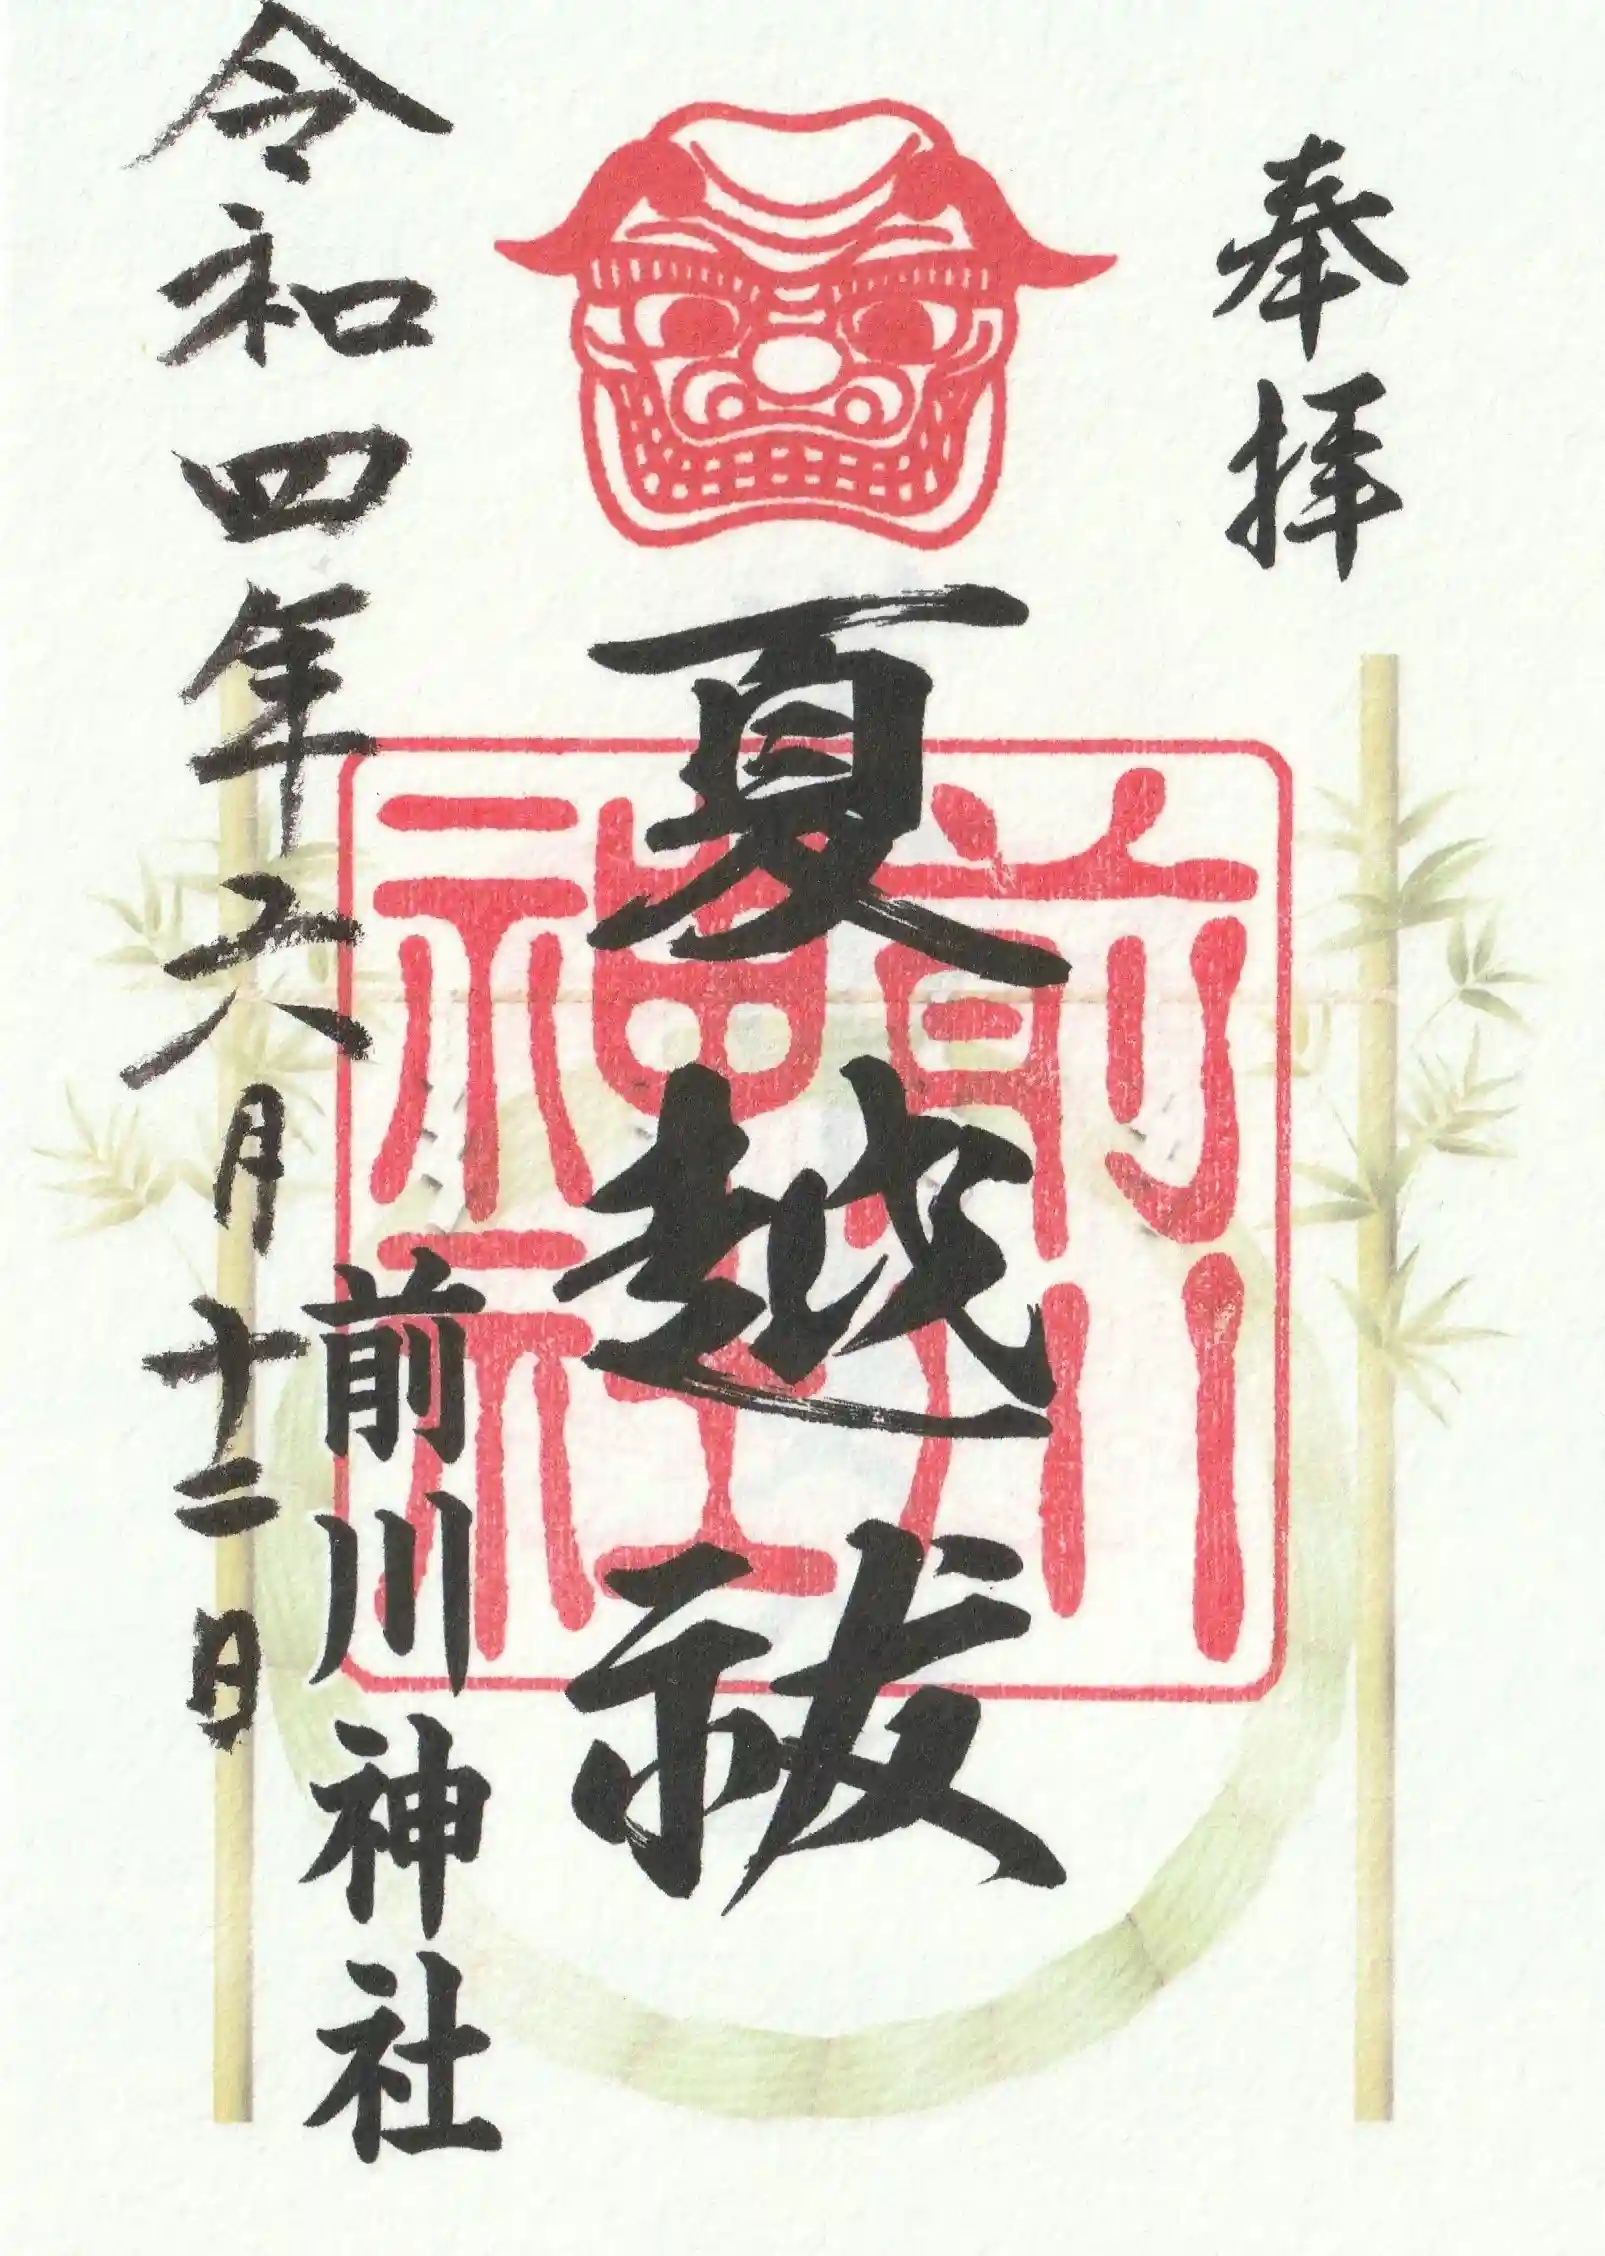 奉拝
夏越祓
前川神社
前川神社
令和四年六月十二日